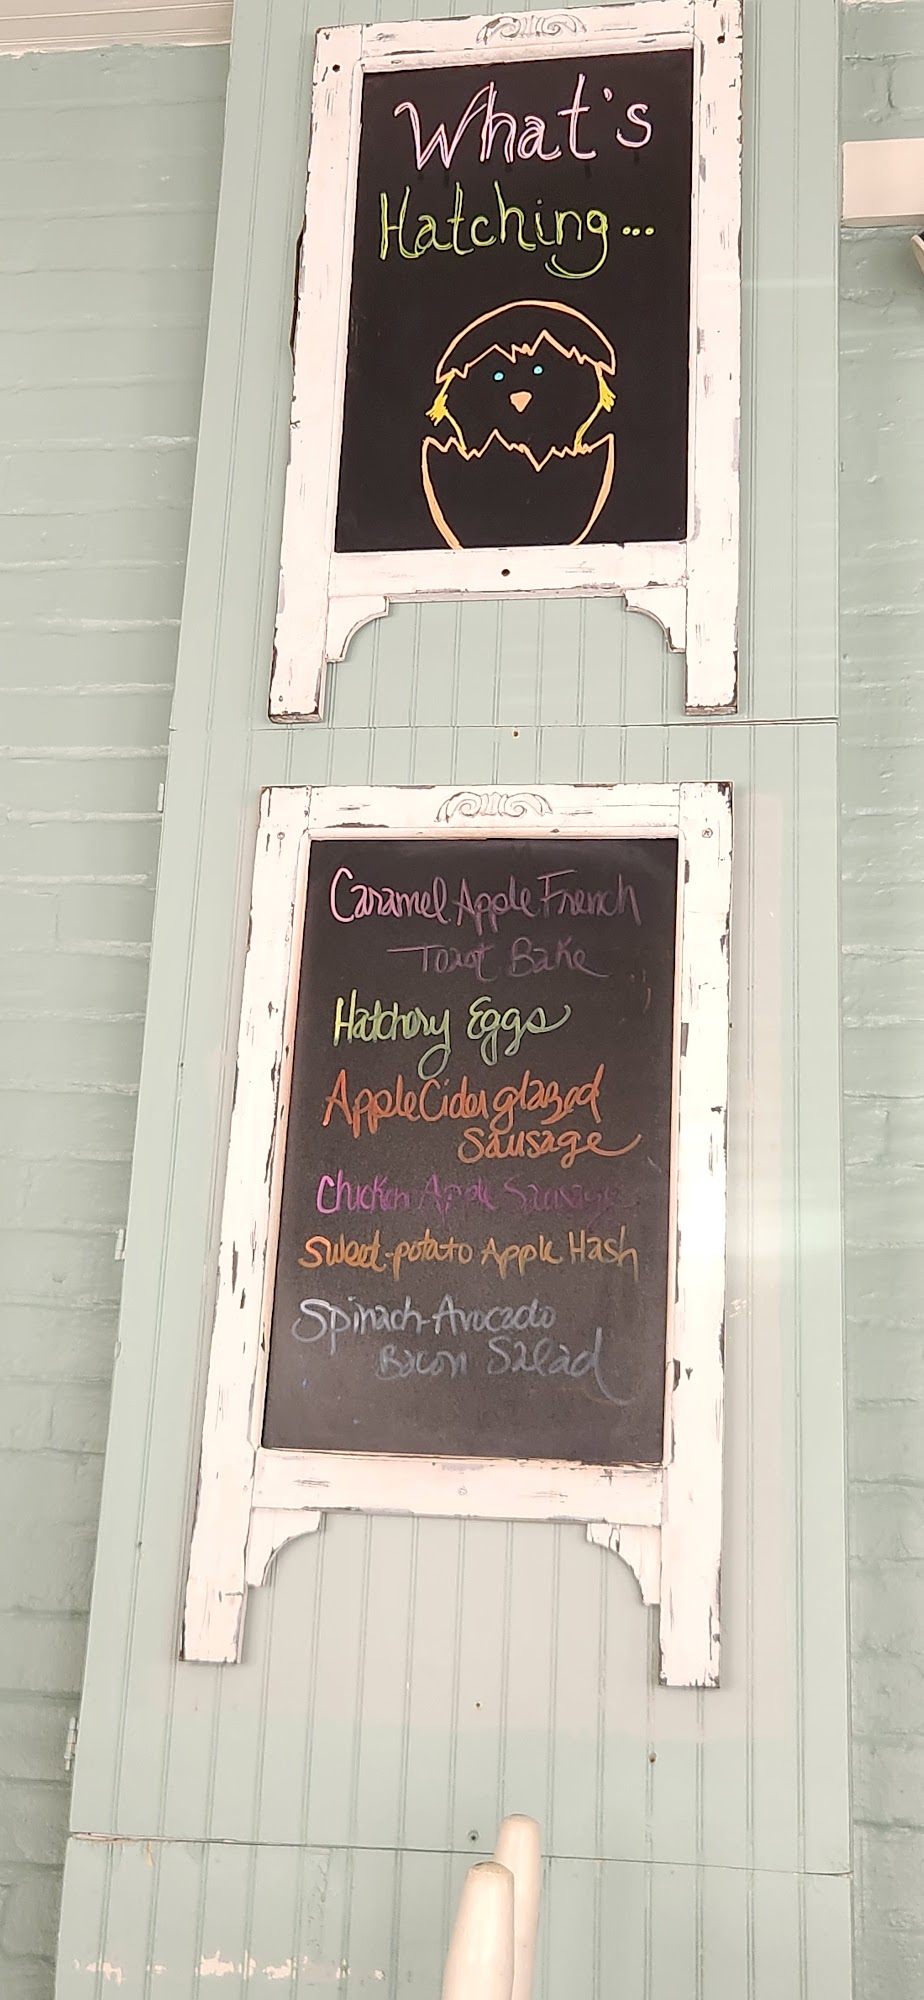 What's
Hatching...
Caramel Apple French
Toast Bake
Hatchery Eggs
Apple Cider glazed
Sausage
Chicken Apple Sausage
Sweet-potato Apple Hash
Spinach-Avocado
Bacon Salad